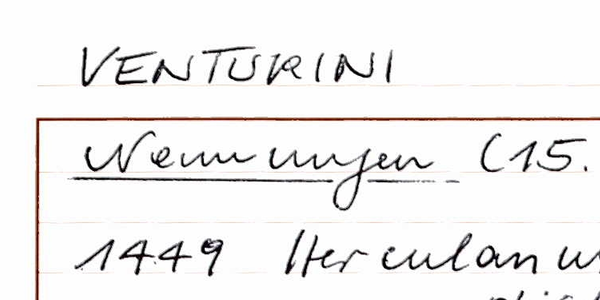 VENTURINI
Nennungen (15.
1449 Herculanu